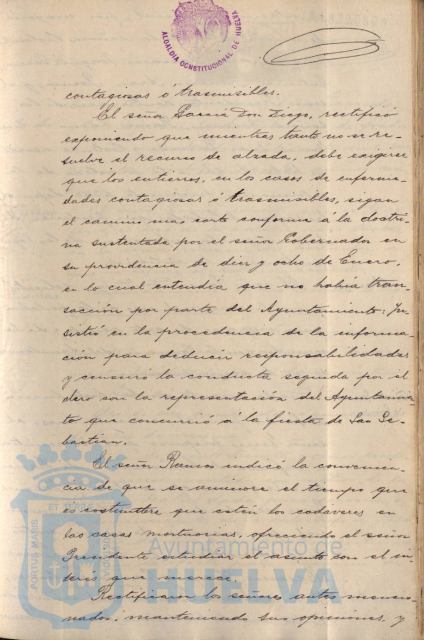 ALCALDIA CONSTITUCIONAL DE HUELVA
contagiosas ó trasmisibles.
El señor Garcia Don Diego, rectificó
exponiendo que mientras tanto no se re-
suelve el recurso de alzada, debe exigirse
que los entierros, en los casos de enferme-
dades contagiosas ó trasmisibles, sigan
el camino mas corto conforme á la doctri-
na sustentada por el señor Gobernador en
su providencia de diez y ocho de Enero,
en lo cual entendia que no habia tran-
sacción por parte del Ayuntamiento. In-
sistió en la procedencia de la informa-
ción para deducir responsabilidades
y censuró la conducta seguida por el
clero con la representación del Ayuntamien-
to que concurrió á la fiesta de San Se-
bastian.
El señor Ramos indicó la convenien-
cia de que se aminore el tiempo que
es costumbre que esten los cadáveres en
las casas mortuorias, ofreciendo el señor
Presidente estudiar el asunto con el in-
terés que merece.
Rectificaron los señores antes mencio-
nados, manteniendo sus opiniones, y
PORTUS MARIS ET
Ayuntamiento de
HUELVA